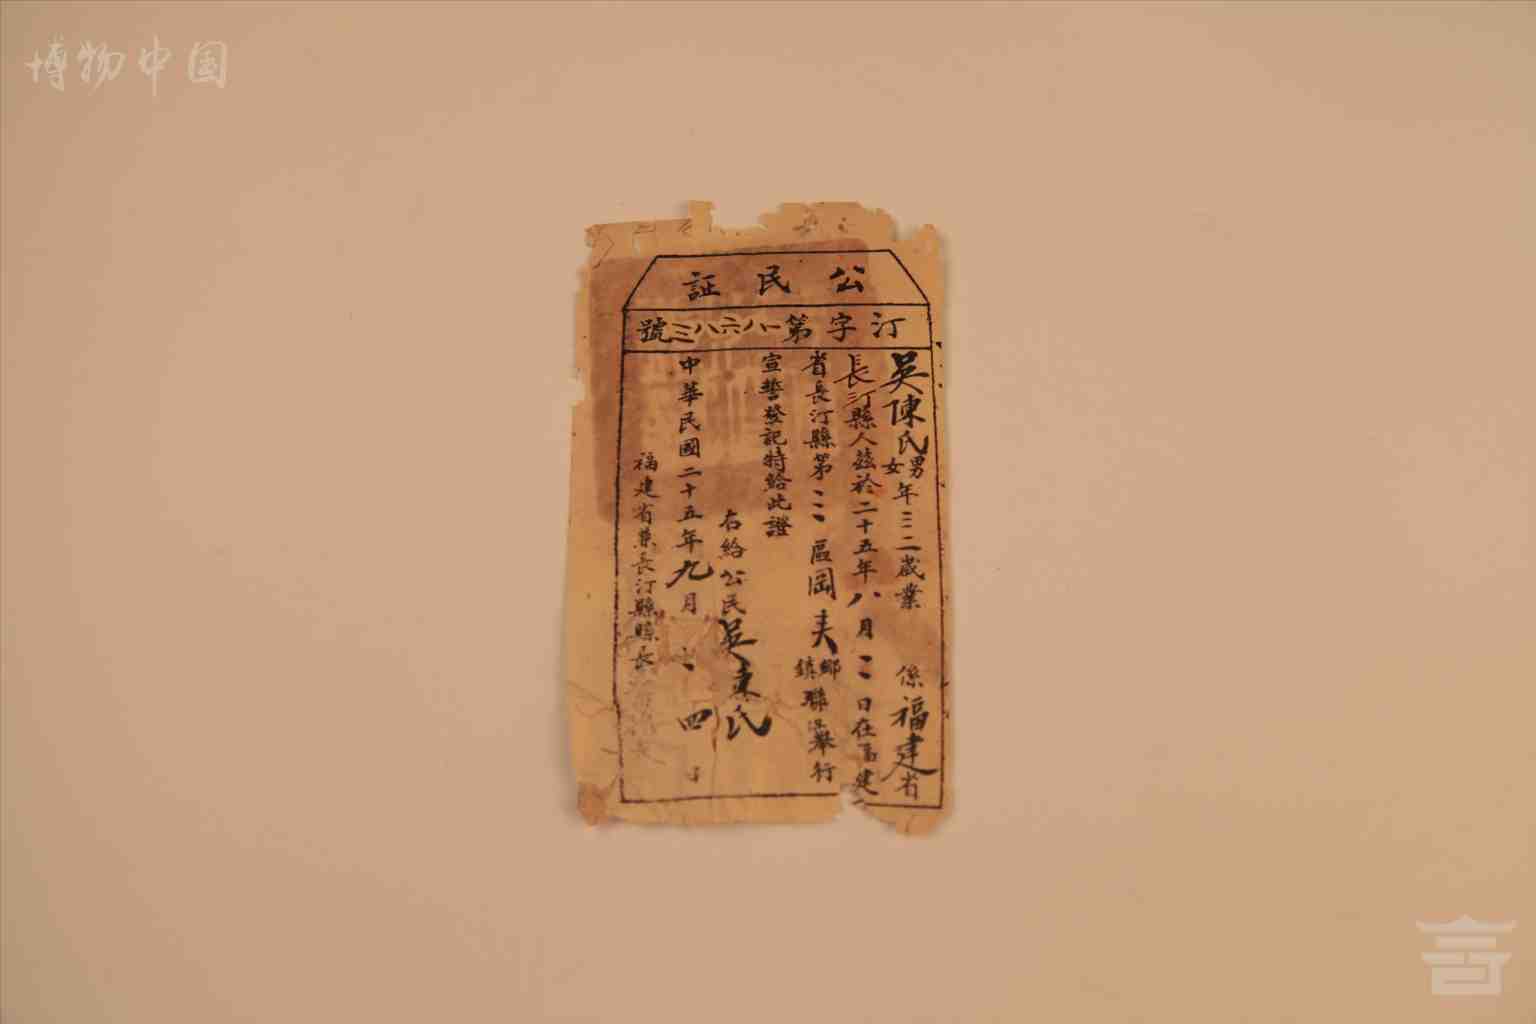 博物中国
公民証
汀字第一八六八三號
吳陳氏男女年三二歲業 係福建省
長汀縣人茲於二十五年八月二日在福建
省長汀縣第三區岡夫鄉鎮聯舉行
宣誓登記特給此證
右給公民吳陳氏
中華民國二十五年九月 四
福建省 長汀縣縣長